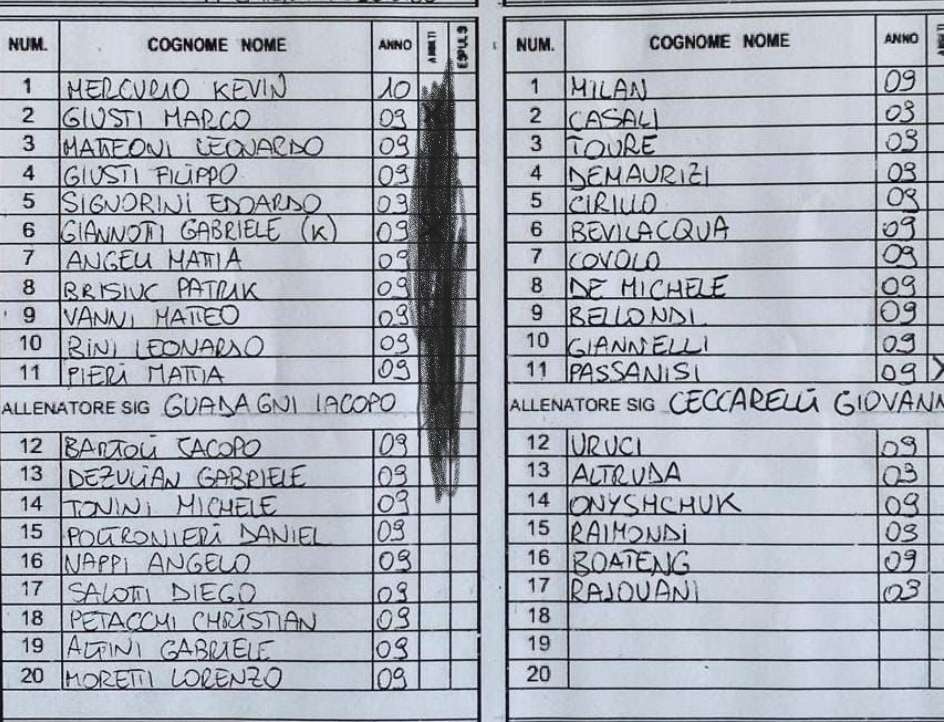 NUM. COGNOME NOME ANNO AMMITI ESPULS
1 MERCURIO KEVIN 10
2 GIUSTI MARCO 09
3 MATTEONI LEONARDO 09
4 GIUSTI FILIPPO 09
5 SIGNORINI EDOARDO 09
6 GIANNOTTI GABRIELE (K) 09
7 ANGELI MATTIA 09
8 BRISIUC PATRIK 09
9 VANNI MATTEO 09
10 BINI LEONARDO 09
11 PIERI MATTIA 09
ALLENATORE SIG GUADAGNI IACOPO
12 BARTOLI JACOPO 09
13 DEZULIAN GABRIELE 09
14 TONINI MICHELE 09
15 POLTRONIERI DANIEL 09
16 NAPPI ANGELO 09
17 SALOTTI DIEGO 09
18 PETACCHI CHRISTIAN 09
19 ALFINI GABRIELE 09
20 MORETTI LORENZO 09
NUM. COGNOME NOME ANNO
1 MILAN 09
2 CASALI 09
3 TOURE 09
4 DEMAURIZI 09
5 CIRILLO 09
6 BEVILACQUA 09
7 COVOLO 09
8 DE MICHELE 09
9 BELLONDI 09
10 GIANNELLI 09
11 PASSANISI 09 X
ALLENATORE SIG CECCARELLI GIOVANN
12 URUCI 09
13 ALTRUDA 09
14 ONYSHCHUK 09
15 RAIMONDI 09
16 BOATENG 09
17 RAJOUANI 09
18
19
20